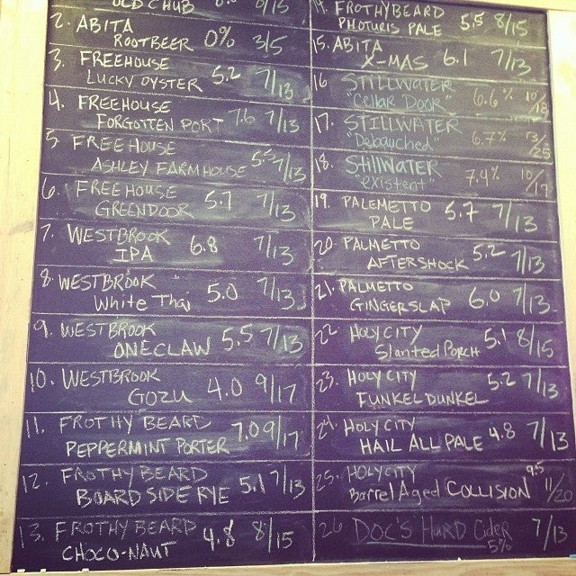 OLD CHUB 9/15
2. ABITA
ROOTBEER 0% 3/5
3. FREEHOUSE
LUCKY OYSTER 5.2 7/13
4. FREEHOUSE
FORGOTTEN PORT 7.6 7/13
5 FREEHOUSE
ASHLEY FARMHOUSE 5.5 7/13
6. FREEHOUSE
GREENDOOR 5.7 7/13
7. WESTBROOK
IPA 6.8 7/13
8. WESTBROOK
White Thai 5.0 7/13
9. WESTBROOK
ONECLAW 5.5 7/13
10. WESTBROOK
GOZU 4.0 9/17
11. FROTHY BEARD
PEPPERMINT PORTER 7.0 9/17
12. FROTHY BEARD
BOARD SIDE RYE 5.1 7/13
13. FROTHY BEARD
CHOCO-NAUT 4.8 8/15
14. FROTHYBEARD
PHOTURIS PALE 5.5 8/15
15. ABITA
X-MAS 6.1 7/13
16 STILLWATER
"Cellar Door" 6.6% 10/18
17. STILLWATER
"Debauched" 6.7% 13/25
18. STILLWATER
"existent" 7.4% 10/17
19. PALEMETTO
PALE 5.7 7/13
20. PALMETTO
AFTERSHOCK 5.2 7/13
21. PALMETTO
GINGERSLAP 6.0 7/13
22. HOLY CITY
Slanted Porch 5.1 8/15
23. HOLY CITY
FUNKEL DUNKEL 5.2 7/13
24. HOLY CITY
HAIL ALL PALE 4.8 7/13
25. HOLYCITY
Barrel Aged COLLISION 9.5 11/20
26 DOC'S HARD Cider 7/13
5%